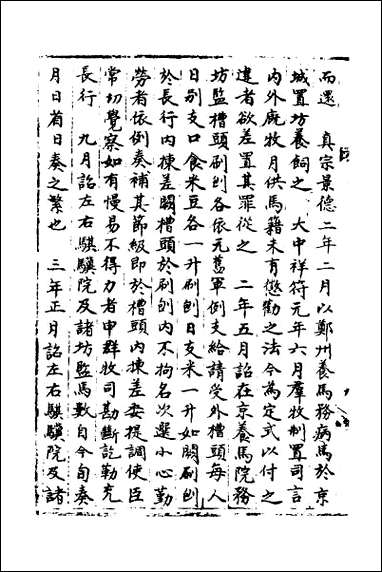 而還　真宗景德二年二月以鄭州養馬務病馬於京
城置坊養飼之　大中祥符元年六月羣牧制置司言
内外廐牧月供馬籍未有懲勸之法令為定式以付之
違者欲差置其罪從之　二年五月詔在京養馬院務
坊監槽頭刷刨各依元舊軍例支給請受外槽頭每人
日别支口食米豆各一升刷刨日支米一升如闕刷刨
於長行内揀差闕槽頭於刷刨内不拘名次選小心勤
勞者依例奏補其節級即於槽頭内揀差委提調使臣
常切覺察如有慢易不得力者申群牧司勘斷訖勒充
長行　九月詔左右騏驥院及諸坊監馬數自今旬奏
月日首日奏之繁也　三年正月詔左右騏驥院及諸